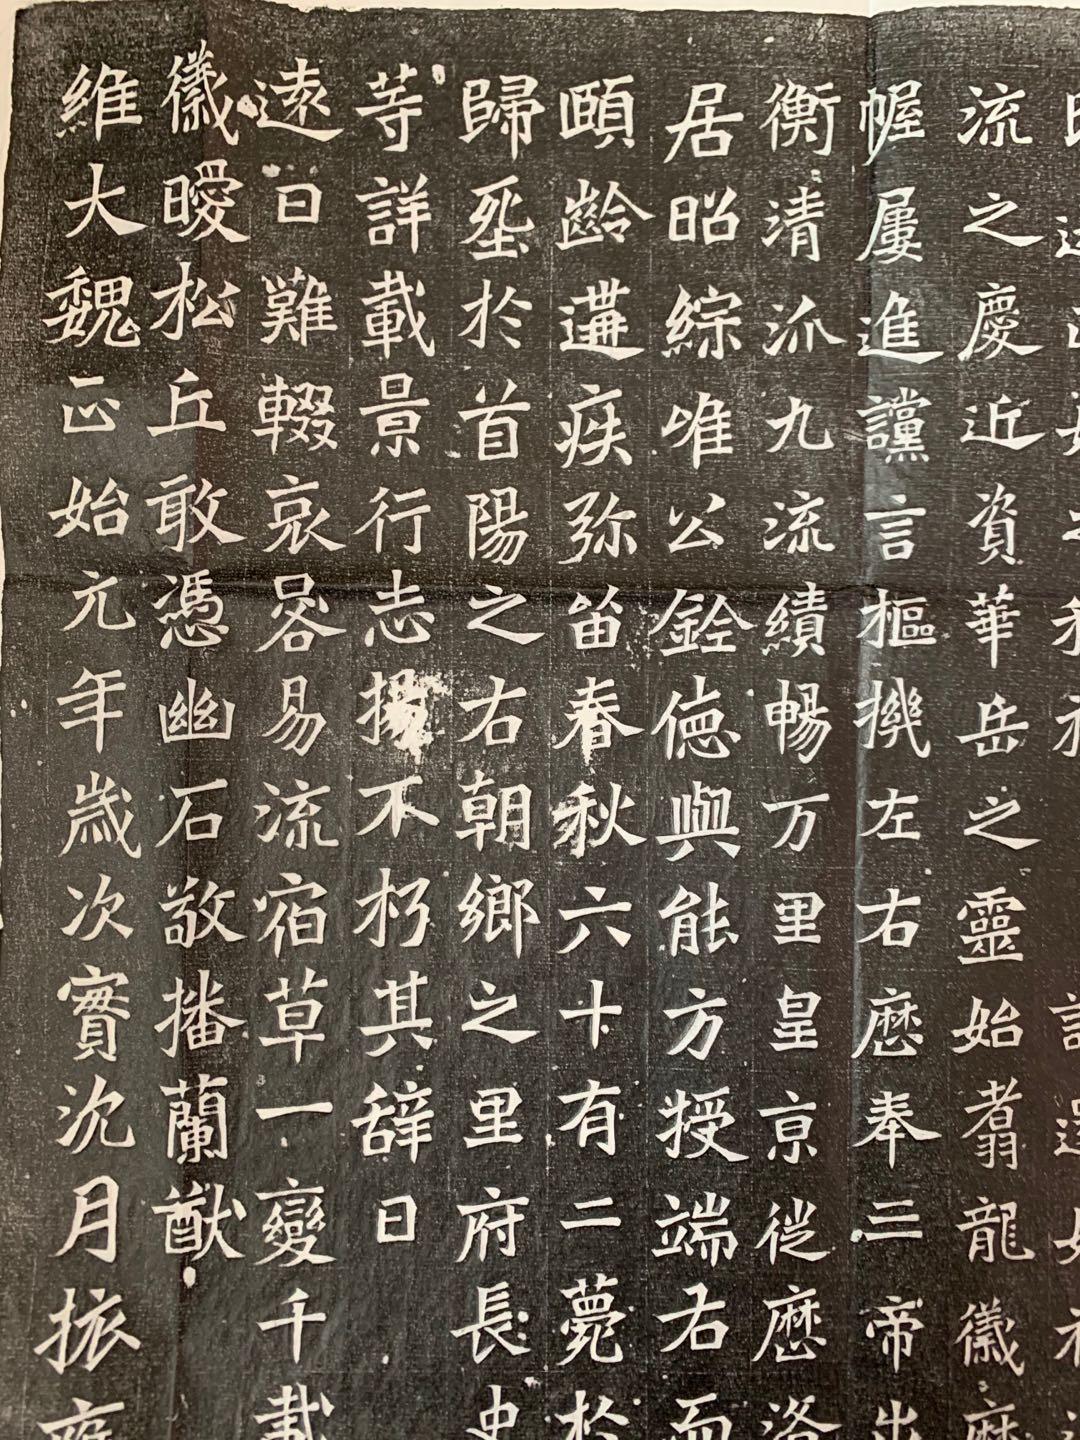 流之慶近資華岳之靈始翥龍徽歷
幄屢進讜言樞機左右歷奉三帝出
衡清泒九流績暢万里皇京從歷洛
居昭綜唯公銓德與能方授端右而
頤齡遘疾弥留春秋六十有二薨於
歸厎於首陽之右朝鄉之里府長史
等詳載景行志揚不朽其辞曰
遠日難輟哀哭易流宿草一變千載
徽曖松丘敢憑幽石敬播蘭猷
維大魏正始元年歲次實沈月挀